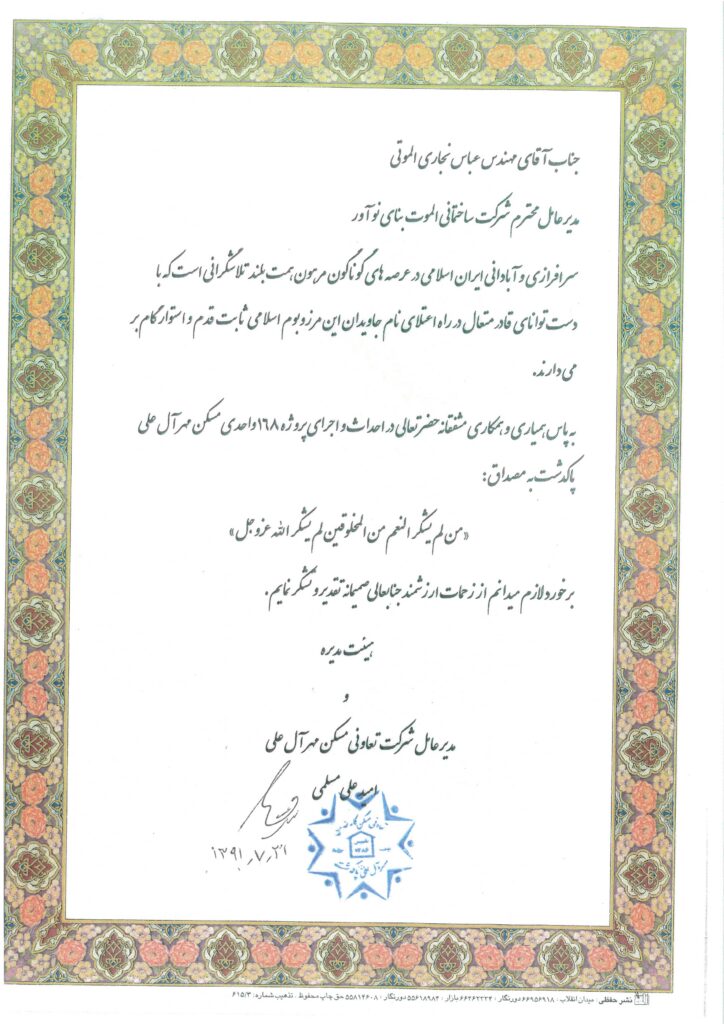 جناب آقای مهندس عباس نجاری الموتی
مدیر عامل محترم شرکت ساختمانی الموت بنای نوآور
سرافرازی و آبادانی ایران اسلامی در عرصه های گوناگون مرهون همت بلند تلاشگرانی است که با
دست توانای قادر متعال در راه اعتلای نام جاویدان این مرز و بوم اسلامی ثابت قدم و استوار گام بر
می دارند.
به پاس همیاری و همکاری مشفقانه حضرتعالی در احداث و اجرای پروژه ۱۶۸ واحدی مسکن مهر آل علی
پاکدشت به مصداق :
«من لم یشکر النعم من المخلوقین لم یشکر الله عزوجل»
برخود لازم میدانم از زحمات ارزشمند جنابعالی صمیمانه تقدیر و تشکر نمایم.
هیئت مدیره
و
مدیر عامل شرکت تعاونی مسکن مهر آل علی
امید علی مسلمی
۱۳۹۱,۷,۳۱
نشر حفظی : میدان انقلاب : ۶۶۹۵۶۹۱۸ دورنگار : ۶۶۲۶۲۲۲۴ بازار : ۵۵۶۱۸۹۸۴ دورنگار : ۵۵۸۱۴۶۰۸ حق چاپ محفوظ . تذهیب شماره: ۶۱۵/۳